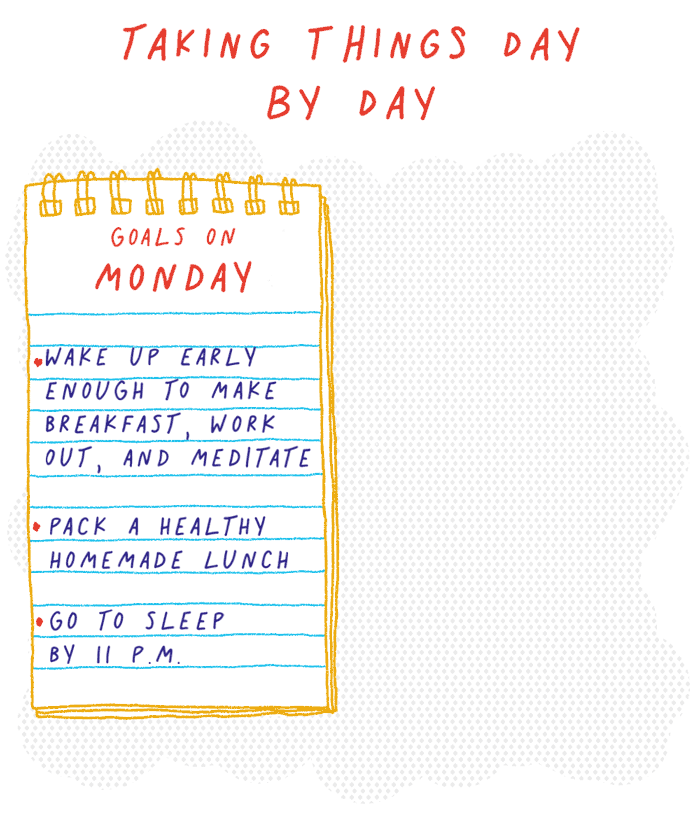 TAKING THINGS DAY
BY DAY
GOALS ON
MONDAY
•WAKE UP EARLY
ENOUGH TO MAKE
BREAKFAST, WORK
OUT, AND MEDITATE
• PACK A HEALTHY
HOMEMADE LUNCH
• GO TO SLEEP
BY 11 P.M.